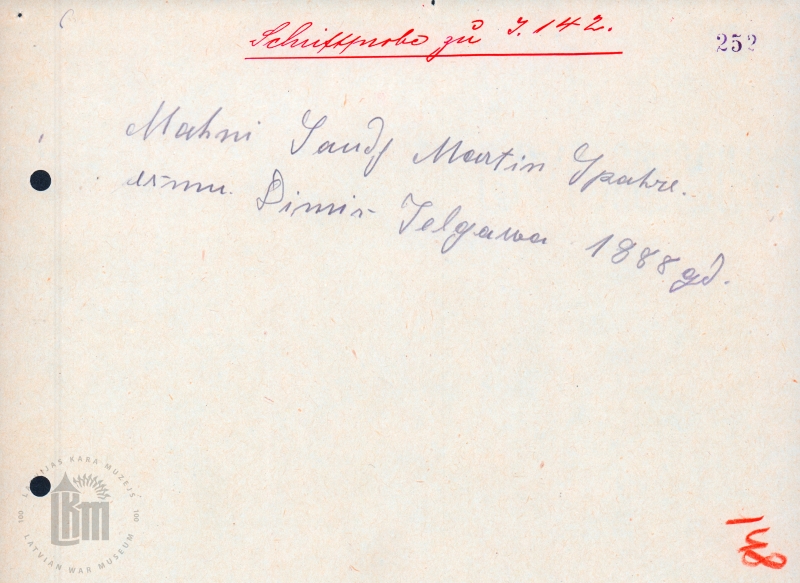 Schriftprobe zu J. 142.
252
Mahni Sauds Martin Spahre.
esmu Dsimis Jelgawa 1888 gd.
148
LATVIJAS KARA MUZEJS
100 LKM 100
LATVIAN WAR MUSEUM